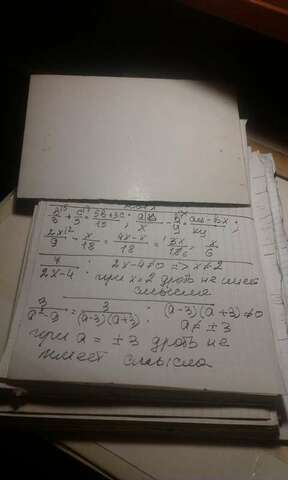 b/3 + c/5 = (5b+3c)/15; a/x - b/y = (ay-bx)/xy;
2x/9 - x/18 = (4x-x)/18 = 3x/18 = x/6
/(2x-4); 2x-4≠0 => x≠2
при x=2 дробь не имеет
смысла
3/(a²-9) = 3/((a-3)(a+3)); (a-3)(a+3)≠0
a≠±3
при a = ±3 дробь не
имеет смысла